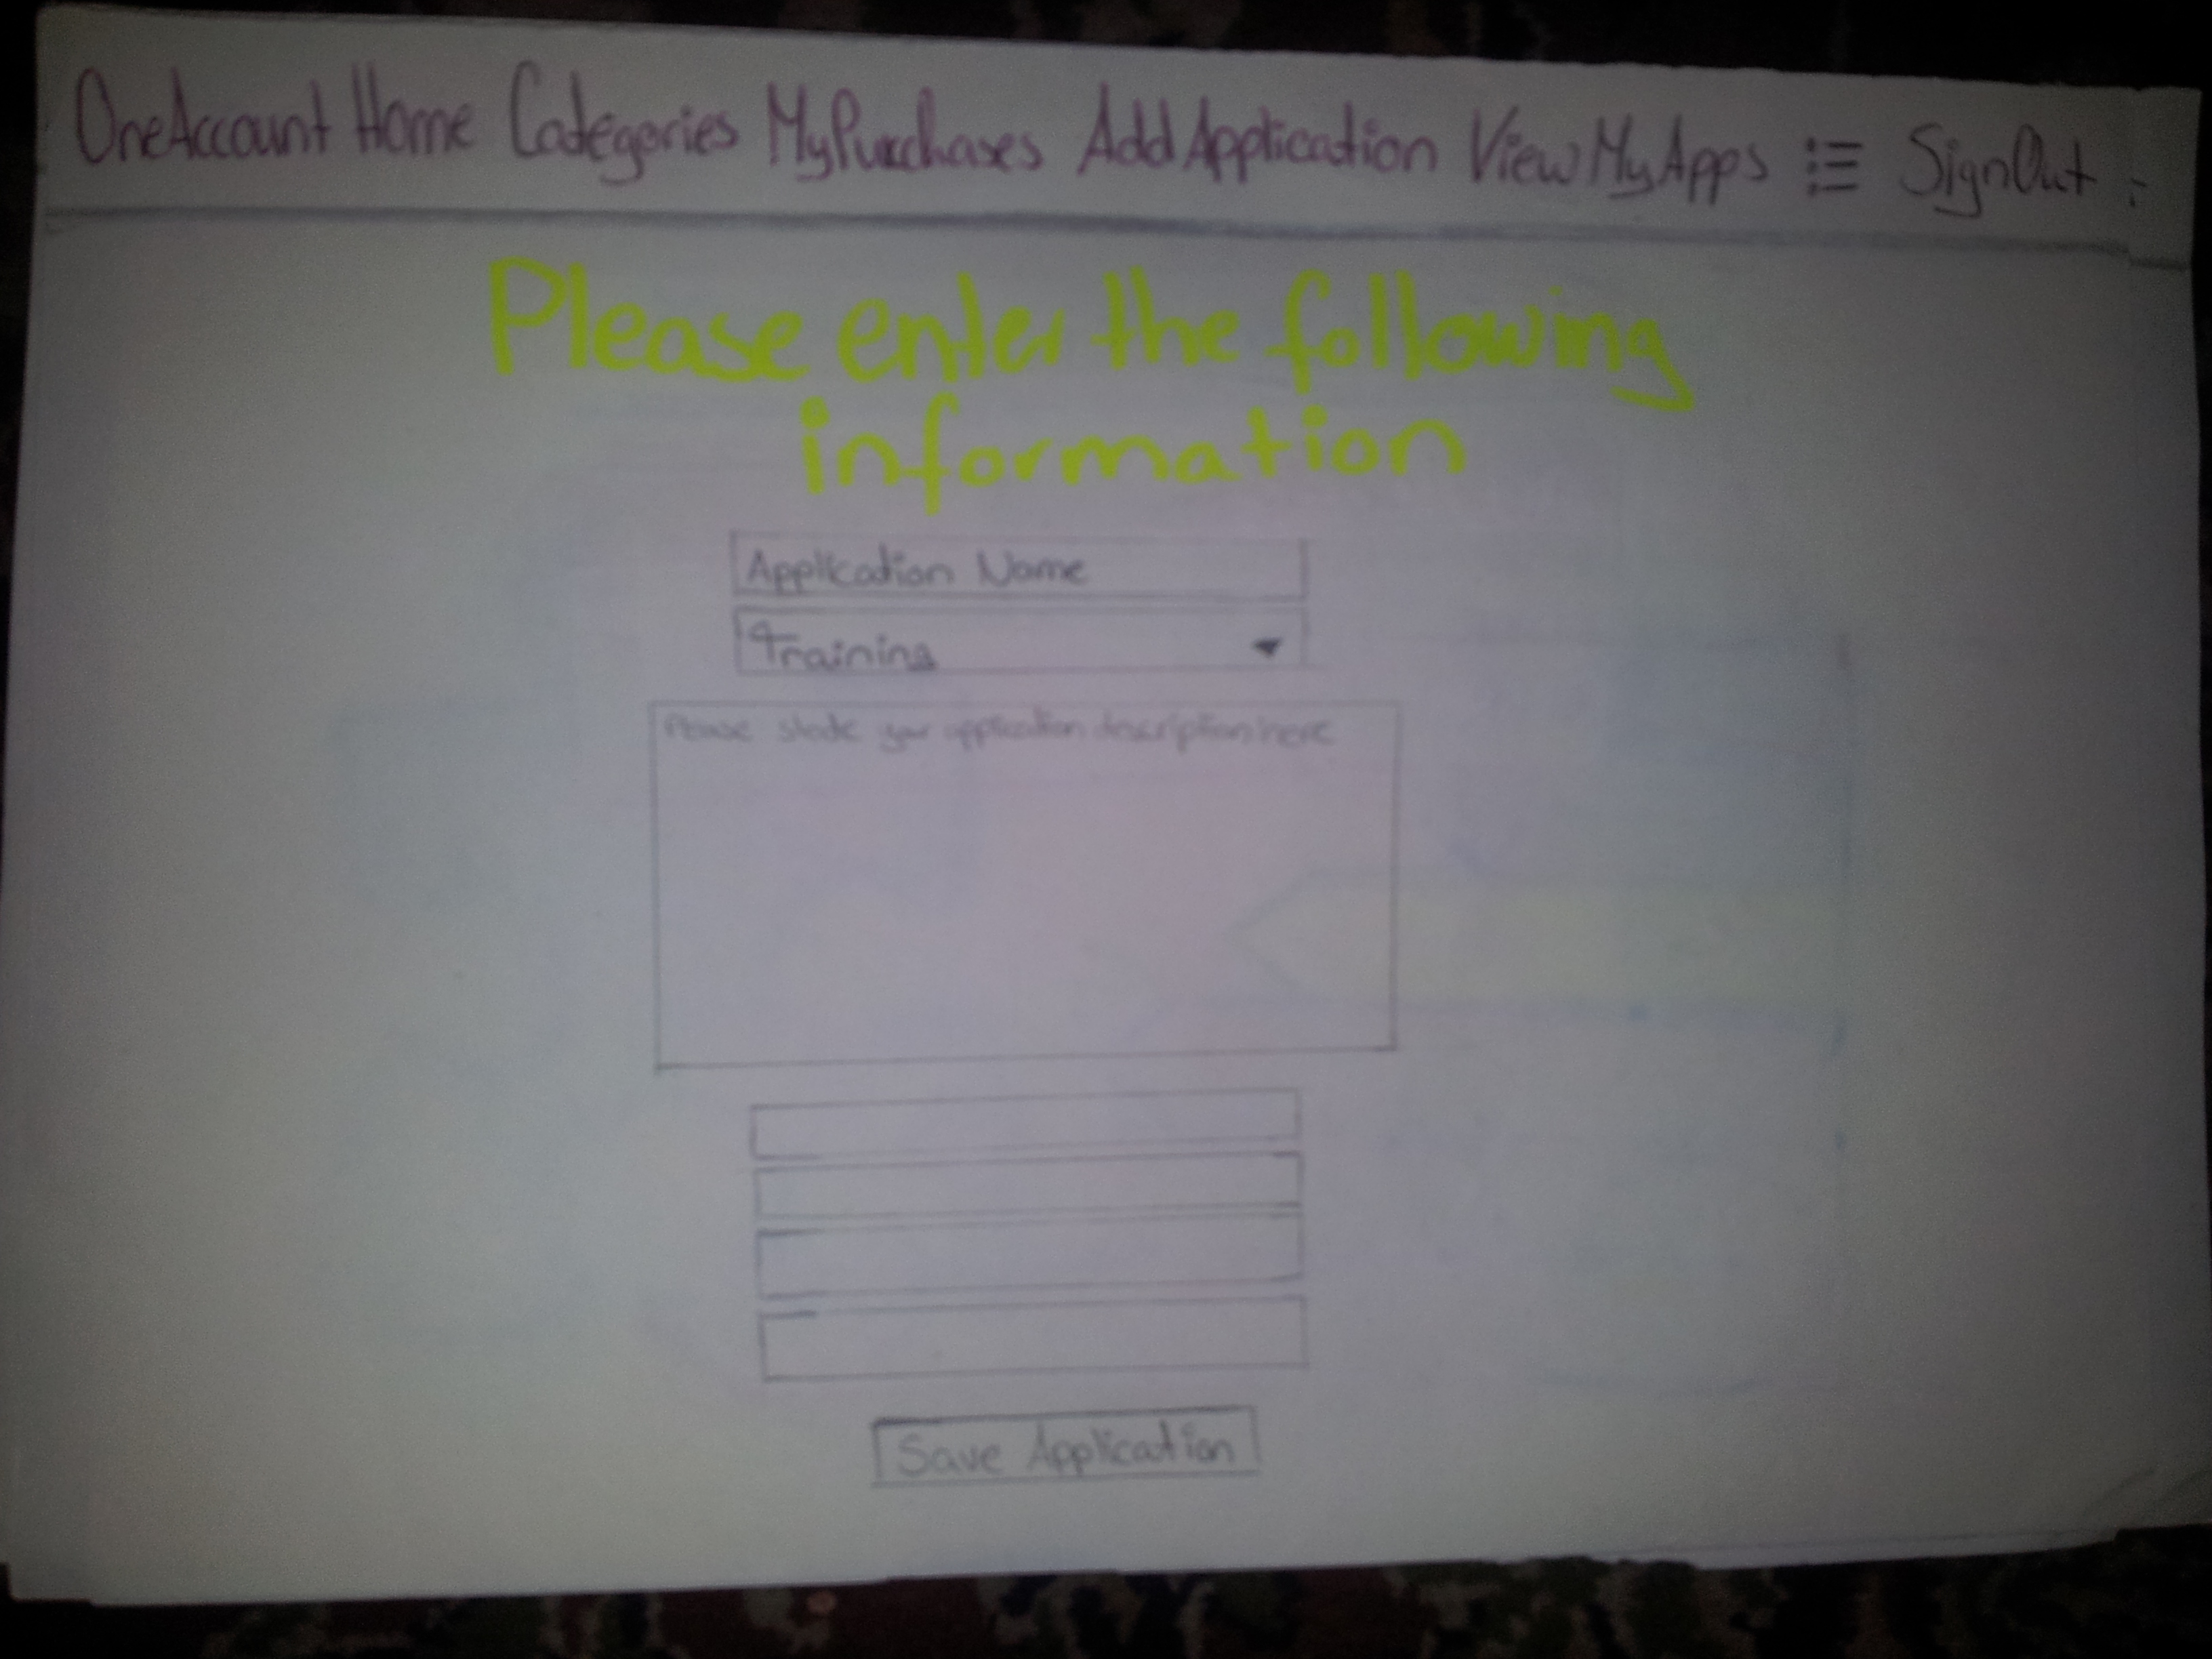 OneAccount Home Categories MyPurchases Add Application View MyApps SignOut
Please enter the following
information
Application Name
Training
Please state your application description here
Save Application